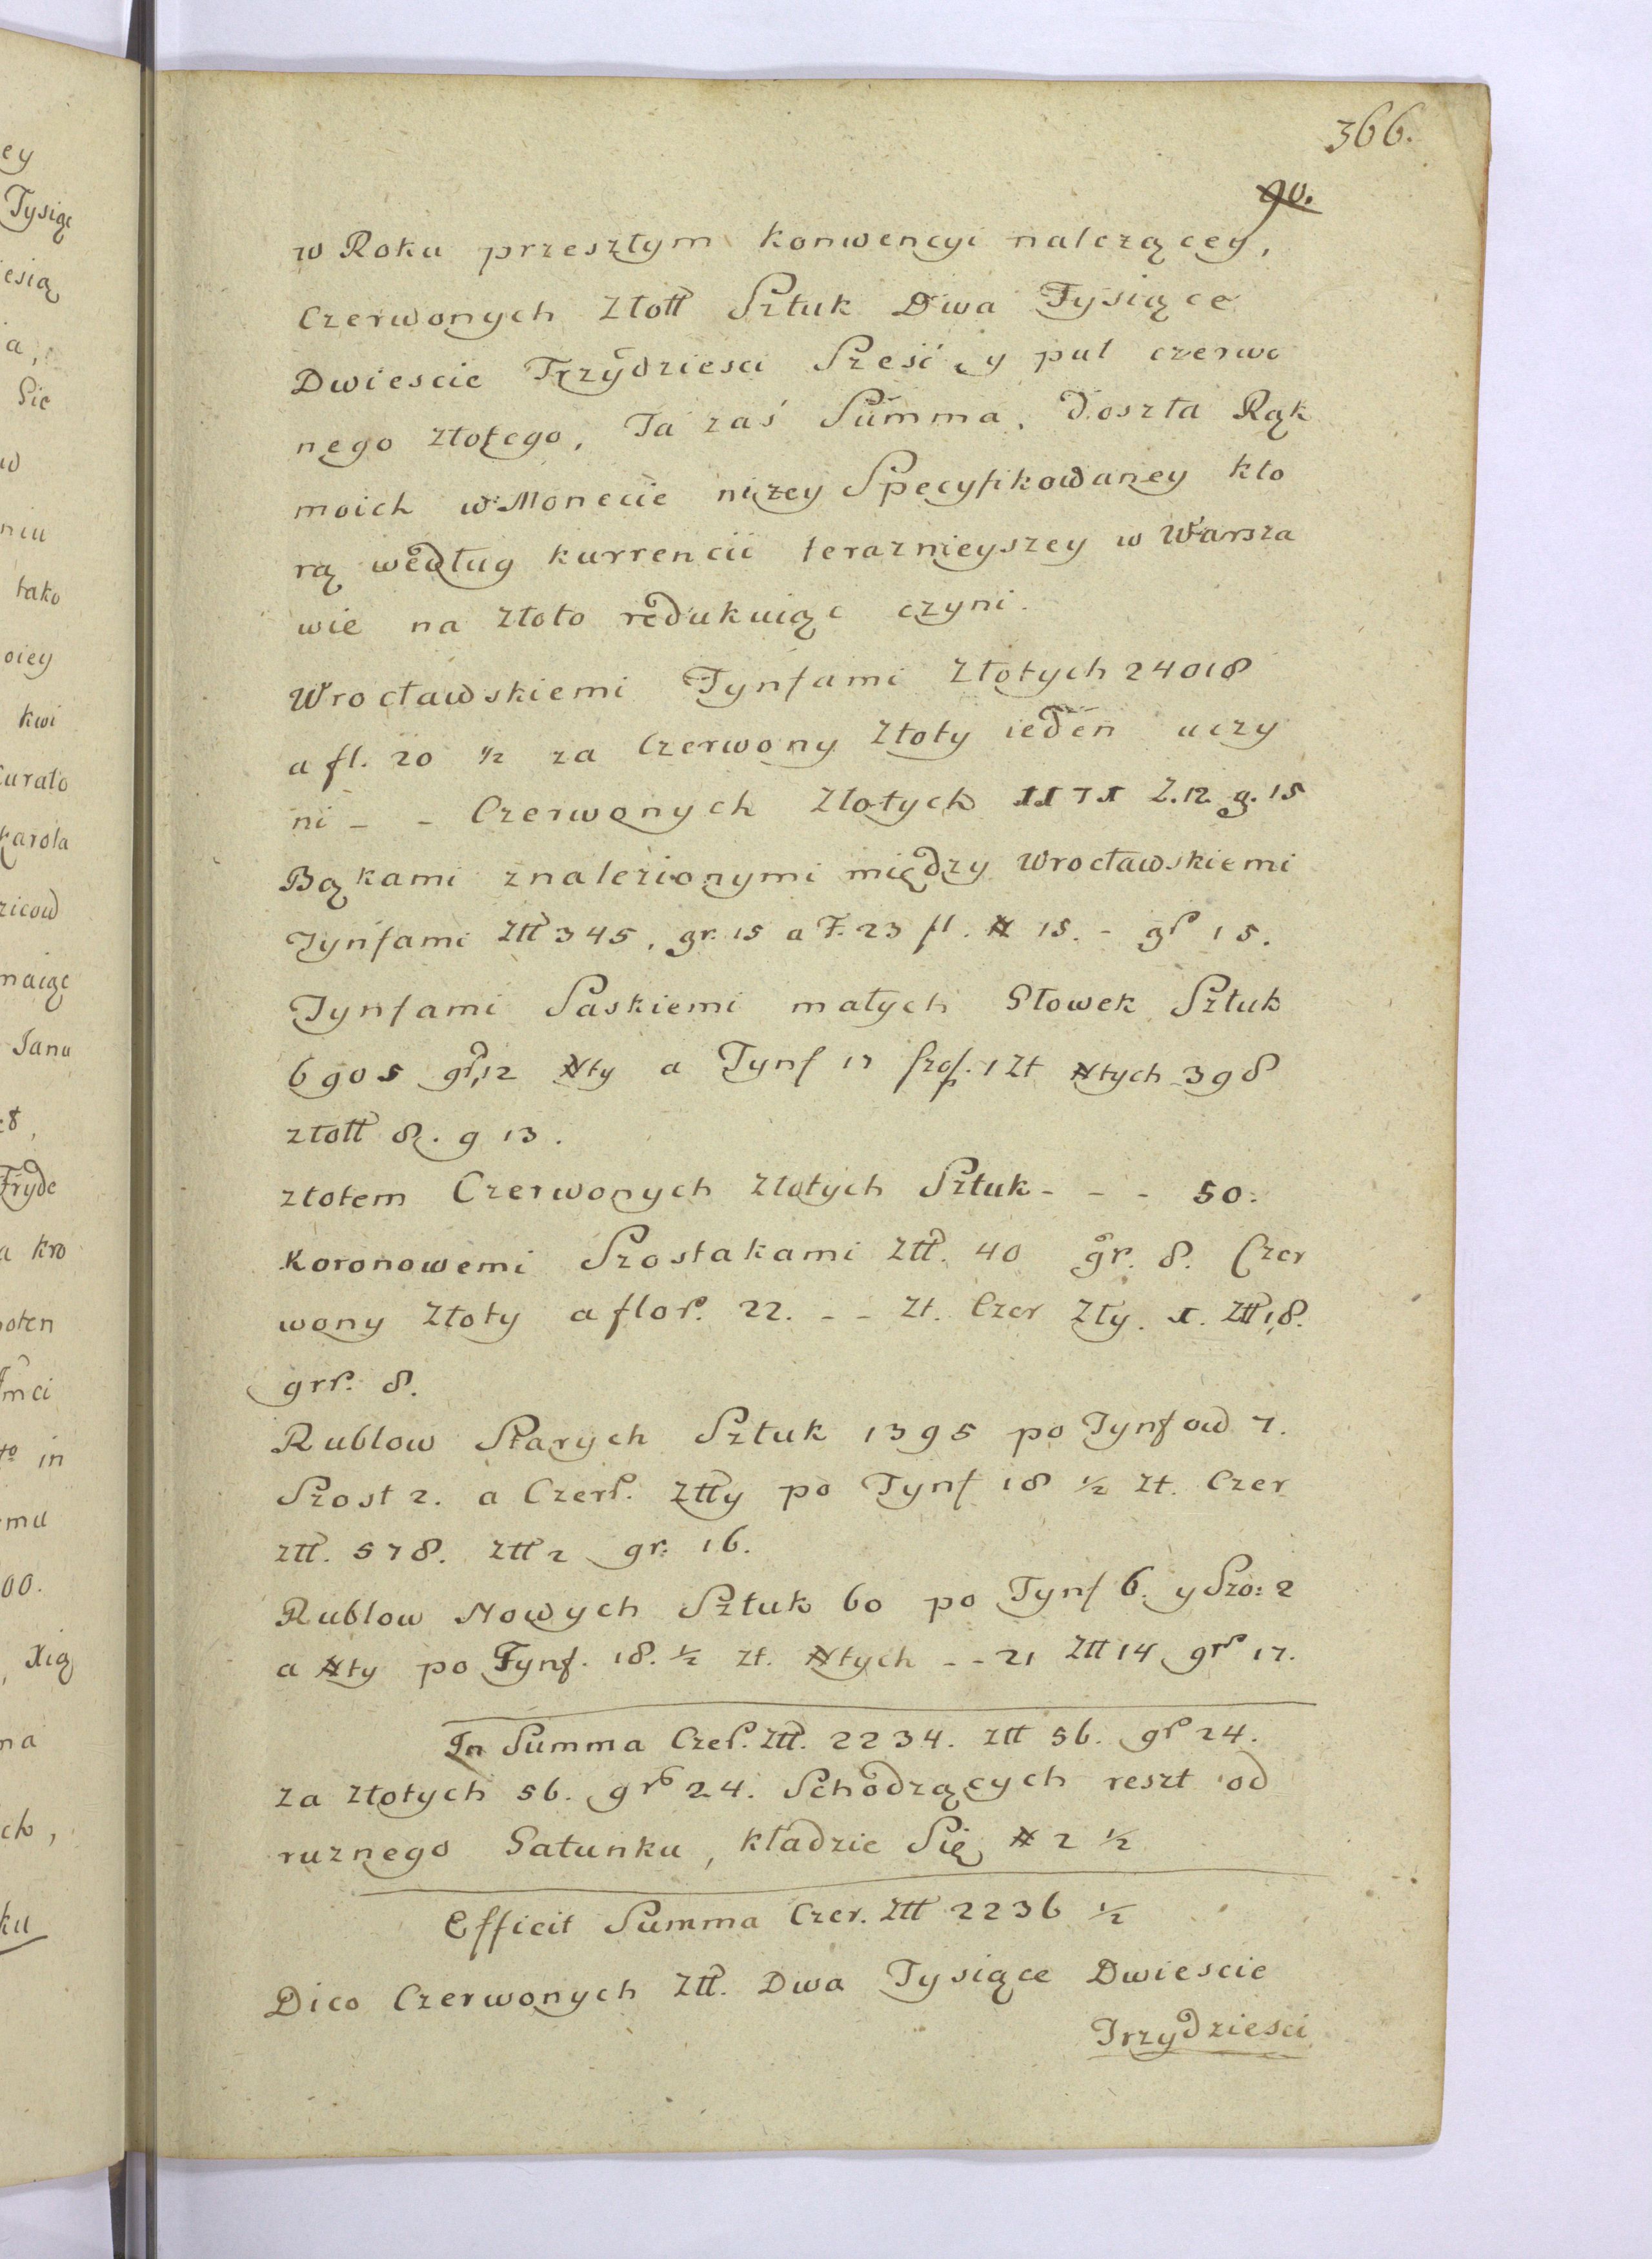 366.
90.
w Roku przeszłym konwencyi nalezącey,
Czerwonych Złott Sztuk Dwa Tysiące
Dwiescie Trzydziesci Sześć y puł czerwo
nego złotego, Ta zaś Summa, doszła Rąk
moich w Monecie niżey Specyfikowaney kto
rą według kurrencii teraznieyszey w Warsza
wie na złoto redukuiąc czyni.
Wrocławskiemi Tynfami Złotych 24018
a fl. 20 ½ za Czerwony Złoty ieden uczy
ni - - Czerwonych Złotych 1171 Z. 12 g. 15
Bąkami znalezionymi między Wrocławskiemi
Tynfami Ztt 345, gr. 15 a F. 23 fl. # 15. - gr 15.
Tynfami Saskiemi małych Głowek Sztuk
6905 gr, 12 #ty a Tynf 17 szos. 1 Zt #tych 398
złott 8. g 13.
złotem Czerwonych złotych Sztuk - - - 50.
Koronowemi Szostakami Ztt. 40 gr. 8. Czer
wony Złoty a flor. 22. - - Zł. Czer Zły. 1. Ztt 18.
grr. 8.
Rublow Starych Sztuk 1395 po Tynfow 7.
Szost 2. a Czer. Ztty po Tynf 18 ½ Zt. Czer
ztt. 578. ztt 2 gr. 16.
Rublow Nowych Sztuk 60 po Tynf 6. y Szo: 2
a #ty po Tynf. 18. ½ Zt. #tych - - 21 Ztt 14 gr 17.
In Summa Czer. Ztt. 2234. Ztt 56. gr 24.
za złotych 56. gr 24. Schodzących reszt od
ruznego Gatunku, kładzie Się # 2 ½
Efficit Summa Czer. Ztt 2236 ½
Dico Czerwonych Ztt. Dwa Tysiące Dwiescie
Trzydziesci
ey
Tysiąc
iesią
a,
Sie
niu
tako
oiey
kwi
Curato
Karola
zicow
maiąc
Jana
Fryde
a kro
oten
Jmci
in
emu
00.
Xią
na
ch,
ku